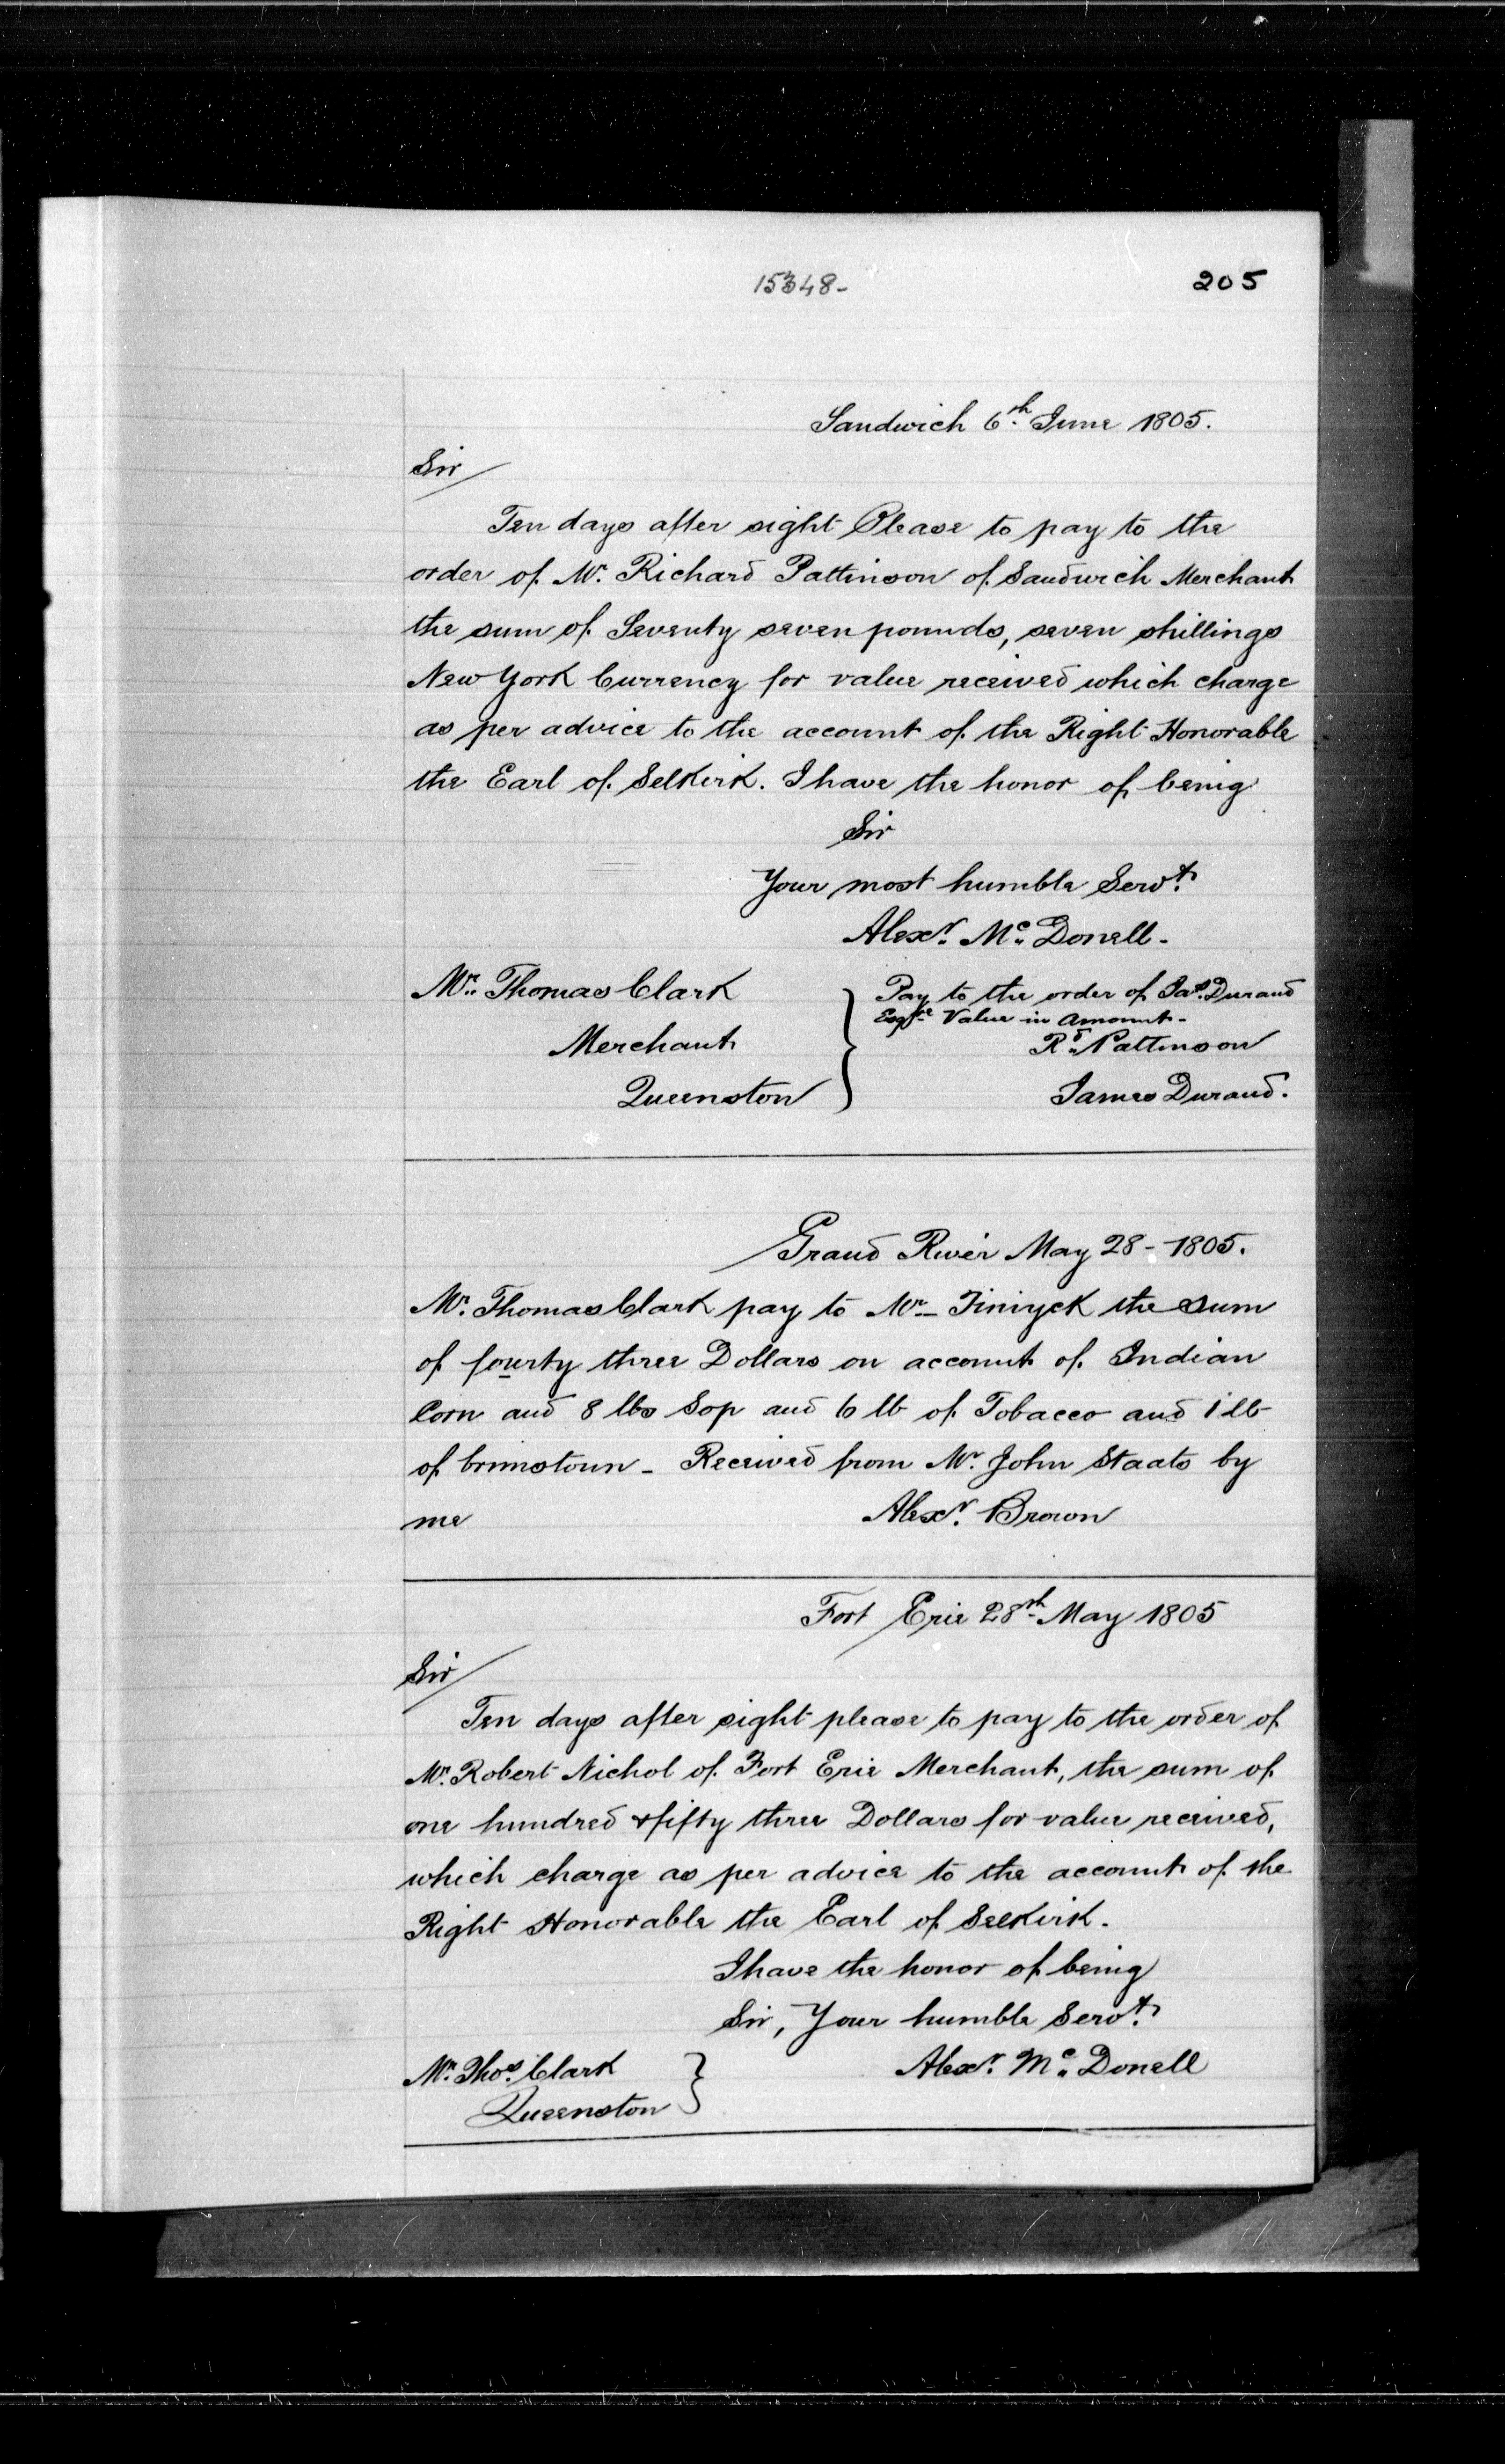 15348-
205
Sandwich 6th June 1805.
Sir
Ten days after sight Please to pay to the
order of Mr. Richard Pattinson of Sandwich Merchant
the sum of Seventy seven pounds, seven shillings
New York Currency for value received which charge
as per advice to the account of the Right Honorable
the Earl of Selkirk. I have the honor of being
Sir
Your most humble Servt.
Alexr. Mc. Donell-
Mr. Thomas Clark
Merchant
Queenston
Pay to the order of Jas. Durand
Esqre Value in Amount-
Rd. Pattinson
James Durand.
Grand River May 28-1805.
Mr. Thomas Clark pay to Mr- Tiniyck the sum
of fourty three Dollars on account of Indian
Corn and 8 lbs Sop and 6 lb of Tobacco and 1 lb
of brimstoun- Received from Mr. John Staats by
me
Alexr. Brown
Fort Erie 28th May 1805
Sir
Ten days after sight please to pay to the order of
Mr. Robert Nichol of Fort Erie Merchant, the sum of
one hundred & fifty three Dollars for value received,
which charge as per advice to the account of the
Right Honorable the Earl of Selkirk.
I have the honor of being
Sir, Your humble Servt.
Alexr. Mc. Donell
Mr. Thos. Clark
Queenston